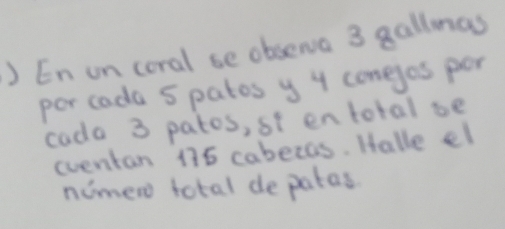 .) En un coral se observa 3 gallinas
por cada 5 patos y 4 conejos por
cada 3 patos, si en total se
cuentan 175 cabezas. Halle el
número total de patas.